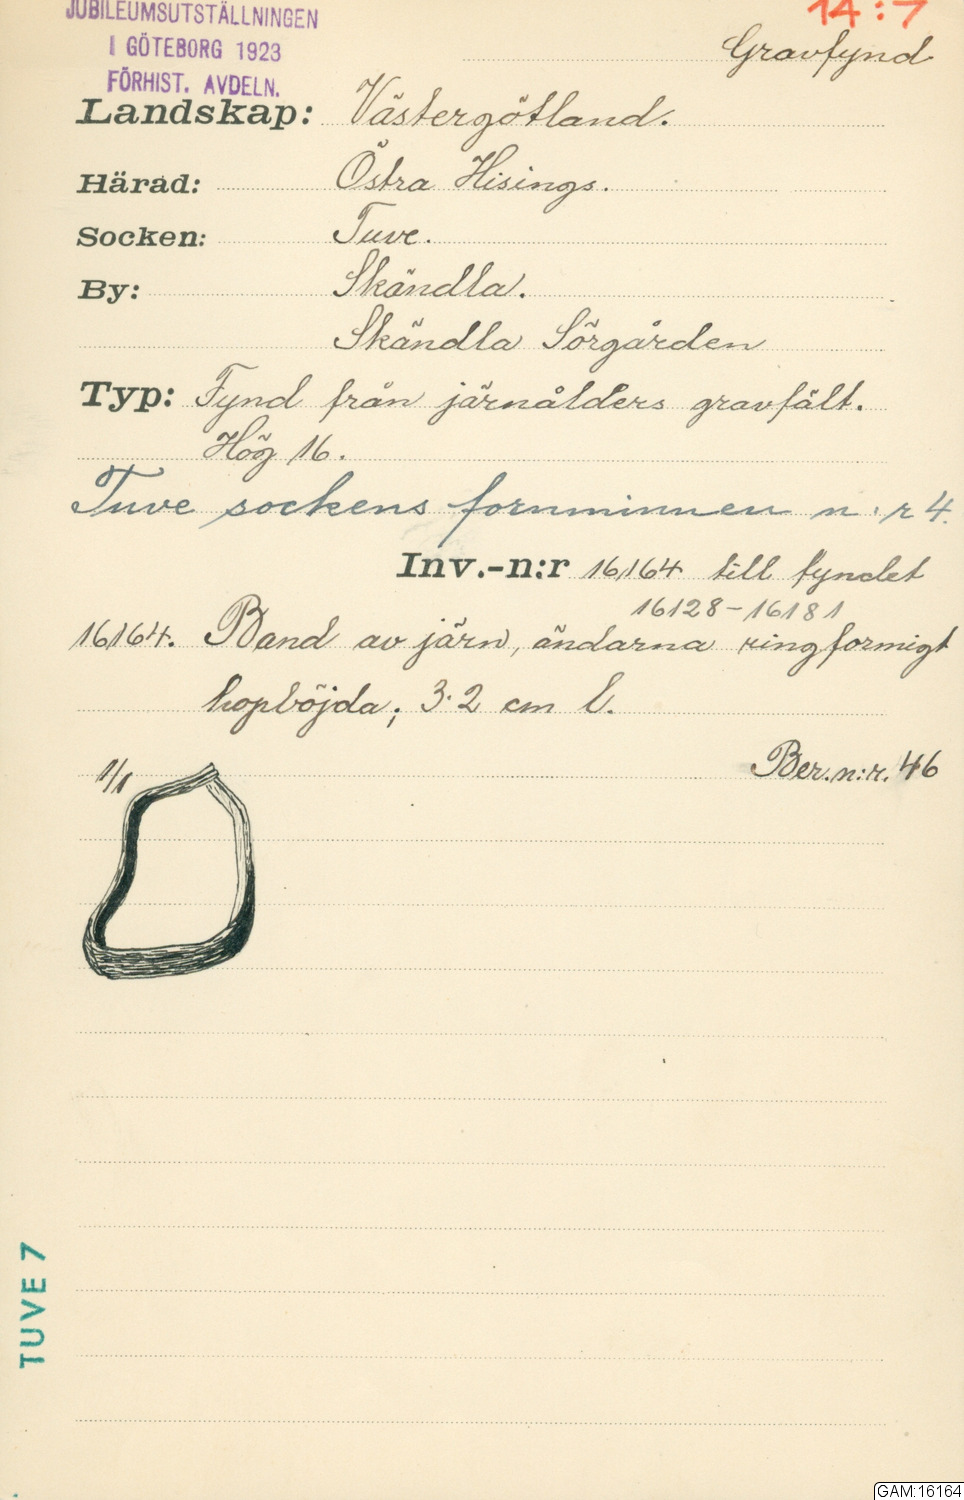 JUBILEUMSUTSTÄLLNINGEN
I GÖTEBORG 1923
FÖRHIST. AVDELN.
14:7
Gravfynd
Landskap: Västergötland.
Härad: Östra Hisings.
Socken: Tuve.
By: Skändla.
Skändla Sörgården
Typ: Fynd från järnålders gravfält.
Hög 16.
Tuve sockens fornminnen n:r 4.
Inv.-n:r 16164 till fyndet
16128-16181
16164. Band av järn, ändarna ringformigt
hopböjda; 3.2 cm l.
Ber. n:r. 46
1/1
TUVE 7
GAM:16164